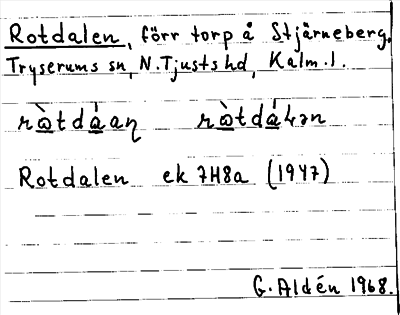 Rotdalen, förr torp å Stjärneberg,
Tryserums sn, N. Tjusts hd, Kalm. l.
rὼtdáaη rὼtdáɬən
Rotdalen ek 7H8a (1947)
G. Aldén 1968.